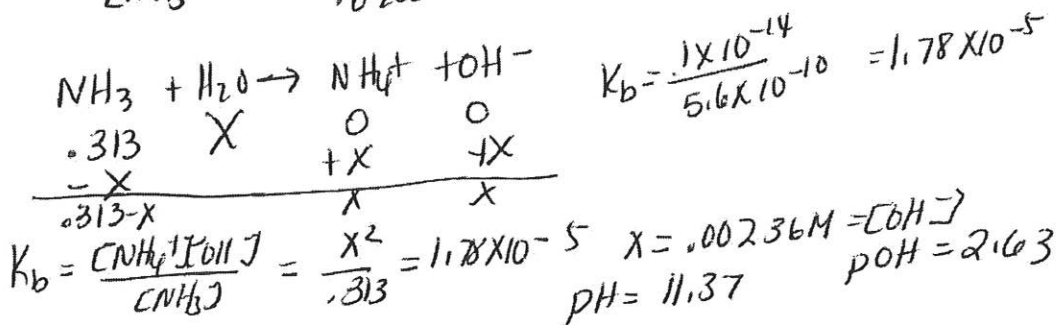 NH3 + H2O → NH4+ + OH- Kb = 1X10^-14 / 5.6X10^-10 = 1.78 X10^-5
.313 X 0 0
-X +X +X
.313-X X X
Kb = [NH4+][OH] / [NH3] = X^2 / .313 = 1.78X10^-5 X = .00236M = [OH-]
pH = 11.37 pOH = 2.63